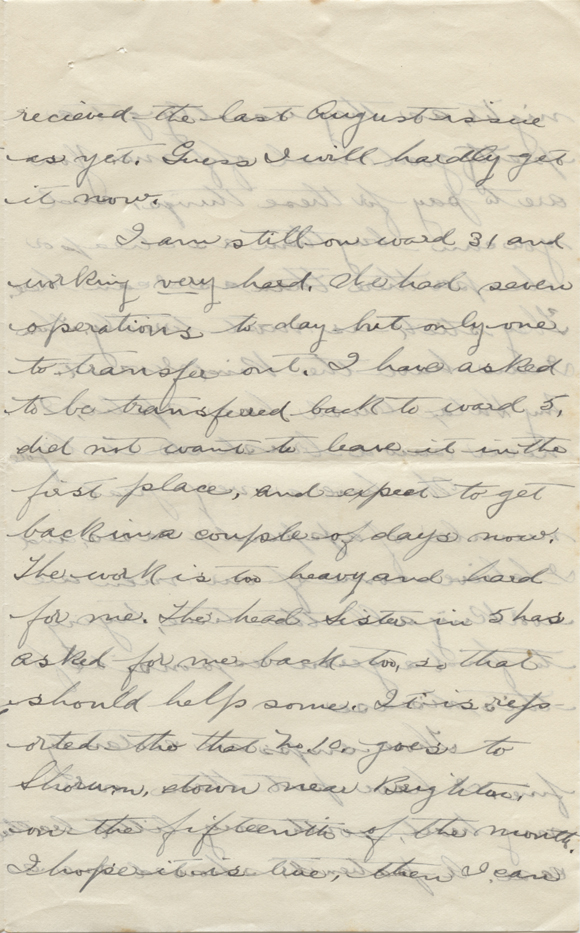 recieved the last August issue
as yet. Guess I will hardly get
it now.
I am still on ward 31 and
working very hard. We had seven
operations to day but only one
to transfer out. I have asked
to be transfered back to ward 5,
did not want to leave it in the
first place, and expect to get
back in a couple of days now.
The work is too heavy and hard
for me. The head Sister in 5 has
asked for me back too, so that
should help some. It is rep-
orted tho that No goes to
down near Brighton,
on the fifteenth of, the month.
I hope it is true, then I can